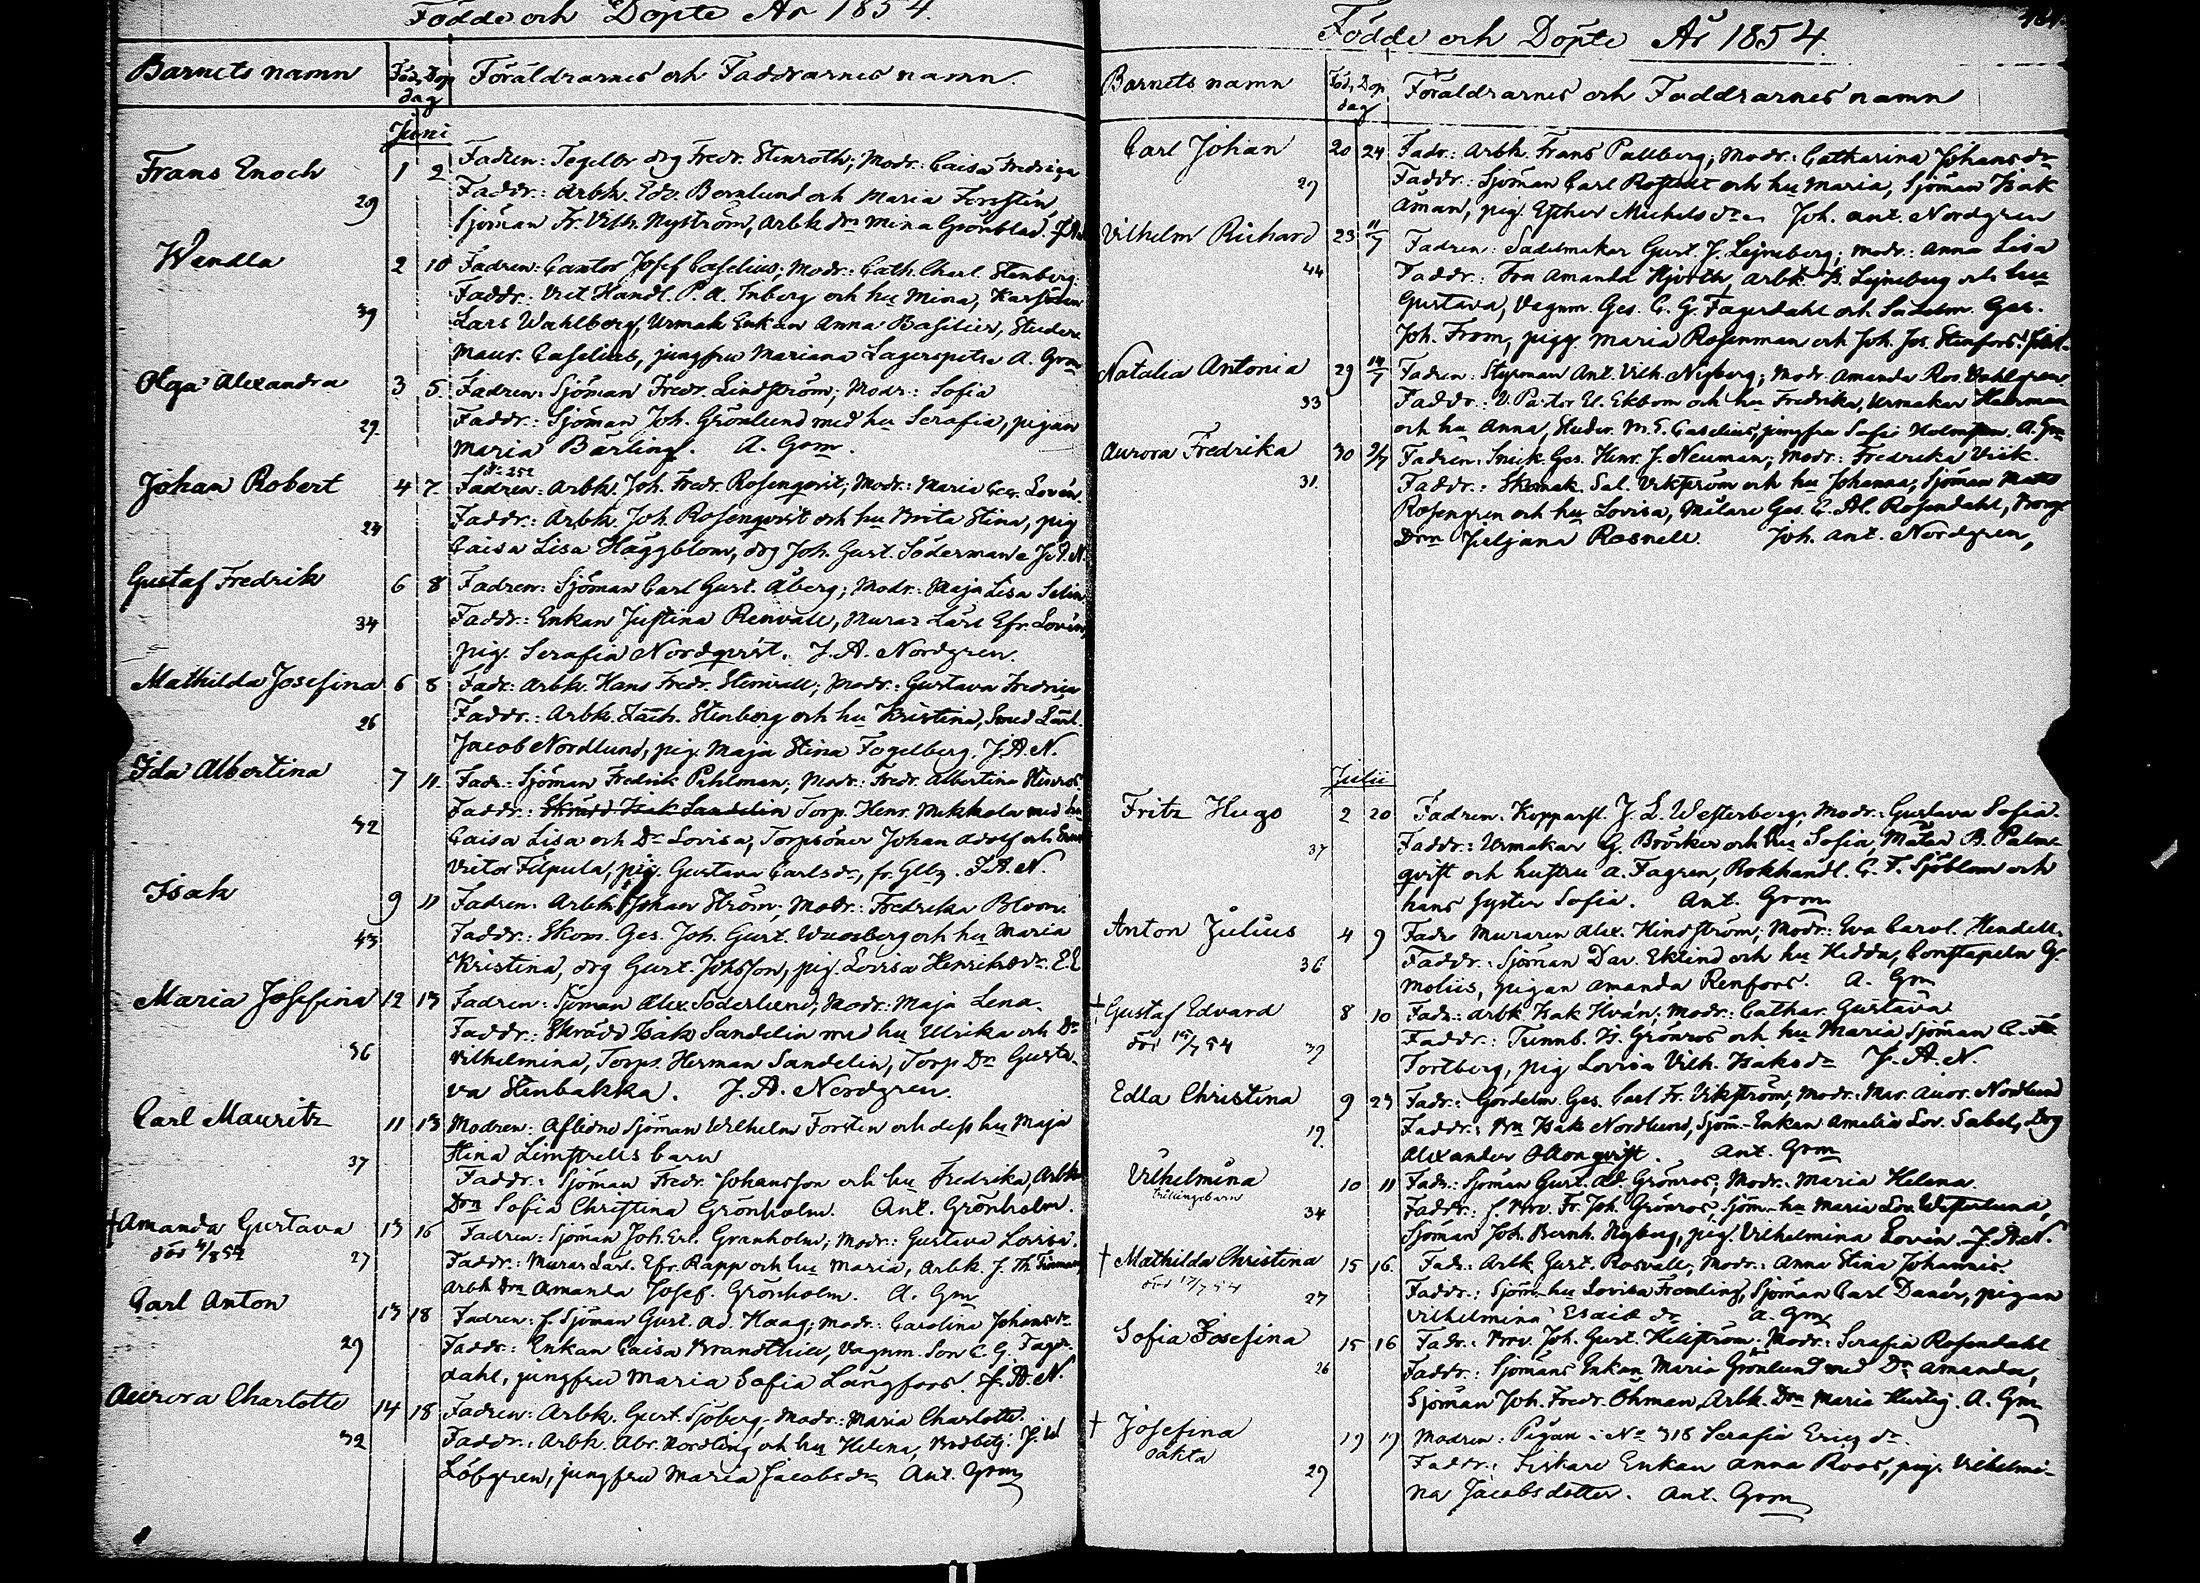 Födde och Döpte År 1854.
Barnets namn Föd. Dop dag Föräldrarnes och Faddrarnes namn.
Juni
Frans Enoch 1 2 Fadren: Fredr. Stenroth; Modr: Caisa Fredrica
29 Faddr.: Arbk. Edv. Bernlund och Maria Forsstén
Sjöman Fr. Vilh. Nyström, Arbk. Drn Mina Grönblad.
Wendla 2 10 Fadren: Cantor Josef Caselius; Modr: Cath. Charl. Stenberg.
Faddr: Vict. Handl. P. A. Inberg och hu Mina,
39 Lars Wahlberg, Urmak. Enkan Anna Basilier, Studer.
Maur. Caselius, jungfru Mariana Lagerspetz A. Grm
Olga Alexandra 3 5. Fadren: Sjöman Fredr. Lindström; Modr: Sofia
29. Faddr: Sjöman Joh. Grönlund med hu Serafia, pigan
Maria Bärling. A. Grm.
Johan Robert 4 7. Fadren: Arbk. Joh. Fredr. Rosenqvist; Modr: Maria Lovén
24 Faddr.: Arbk. Joh. Rosenqvist och hu Brita Stina, pig.
Caisa Lisa Häggblom, drg Joh. Gust. Söderman J. A. N.
Gustaf Fredrik 6 8 Fadren: Sjöman Carl Gust. Åberg; Modr: Maja Lisa Selin
34 Faddr.: Enkan Justina Renvall, Murar Lärl Efr. Lovén,
pig. Serafia Nordqvist. J. A. Nordgren.
Mathilda Josefina 6 8 Fadr: Arbk. Hans Fredr. Stenvall; Modr: Gustava Fredrica
26 Faddr.: Arbk. Zach. Stenberg och hu Kristina, Smed Lärl.
Jacob Nordlund, pig. Maja Stina Fogelberg. J. A. N.
Ida Albertina 7 11. Fadr: Sjöman Fredrik Pahlman; Modr: Fredr. Albertina
32 Faddr: Skrädd. Isak Sandelin Torp. Henr. Mikkola med hu
Caisa Lisa och Dr Lovisa, Torpsöner Johan Adolf och
Victor Filpula, pig. Gustava Carlsdr., fr. Glby. J. A. N.
Isak 9 11 Fadren: Arbk. Johan Ström; Modr: Fredrika Bloom.
43 Faddr: Skom. Ges. Joh. Gust. Wuosberg och hu Maria
Kristina, drg Gust. Johsson, pig. Lovisa Henriksdr.
Maria Josefina 12 13 Fadren: Sjöman Alex. Söderlund; Modr: Maja Lena.
36 Faddr: Skrädd. Isak Sandelin med hu Ulrika och Dr
Vilhelmina, Torps. Herman Sandelin, Torp Dr Gusta-
va Stenbakka. J. A. Nordgren.
Carl Mauritz 11 13 Modren: Aflidne Sjöman Wilhelm Forstén och dess hu Maja
37 Stina Limstrells barn
Faddr: Sjöman Fredr. Johansson och hu Fredrika, Arbk.
Drn Sofia Christina Grönholm. Ant. Grönholm.
†Amanda Gustava 13 16 Fadren: Sjöman Joh. Er. Granholm; Modr: Gustava Lovisa.
död 4/8 54 27 Faddr: Murar Lärl. Efr. Rapp och hu Maria, Arbk. J. Th.
Arbk Drn Amanda Josef. Grönholm. A. Grm
Carl Anton 13 18 Fadren: f. Sjöman Gust. Ad. Haag; Modr: Carolina Johansdr
29 Faddr: Enkan Caisa Brandthill, Vagnm. Son C. G. Fager-
dahl, jungfru Maria Sofia Långfors. J. A. N.
Aurora Charlotte 14 18 Fadren: Arbk. Gust. Sjöberg; Modr: Maria Charlotte.
32 Faddr: Arbk. Abr. Nordling och hu Helena,
Löfgren, jungfru Maria Jacobsdr Ant. Grm
Födde och Döpte År 1854.
Barnets namn Föd. Dop dag Föräldrarnes och Faddrarnes namn
Carl Johan 20 24 Fadr: Arbk. Frans Pallberg; Modr: Catharina Johansdr
29 Faddr: Sjöman Carl och hu Maria, Sjöman Isak
Åman, pig. Esther Michelsdr. Joh. Ant. Nordgren
Vilhelm Richard 23 11/7 Fadren: Sadelmakar Gust. J. Lejneberg; Modr: Anna Lisa
44 Faddr: Fru Amanda Hjorth, Arbk. Is. Lejneberg och hu
Gustava, Vagnm. Ges. C. G. Fagerdahl och Sadelm. Ges.
Joh. From, pigg. Maria Rosenman och Joh. Jos. Stenfors.
Natalia Antonia 29 14/7 Fadren: Styrman Ant. Vilh. Nyberg; Modr. Amanda Ros. Vahlgren.
33 Faddr: V. Pastor U. Ekbom och hu Fredrika, Urmakar
och hu Anna, Studer. M. E. Caselius, jungfru Sofie Holmsten. A. Grm
Aurora Fredrika 30 2/7 Fadren: Snick. Ges. Henr. J. Neuman; Modr: Fredrika Vick.
31. Faddr: Skomak. Sal. Vikström och hu Johanna; Sjöman Matts
Rosengren och hu Lovisa, Målare Ges. C. Al. Rosendahl,
Drn Juljana Rosnell Joh. Ant. Nordgren,
Julii
Fritz Hugo 2 20 Fadren: Kopparsl. J. L. Westerberg; Modr: Gustava Sofia.
37 Faddr: Urmakar G. Bröcker och hu Sofia, Målar B. Palm-
qvist och hustru A. Fagren, Bokhandl. C. F. Sjöblom och
hans syster Sofia. Ant. Grm
Anton Julius 4 9 Fadr: Muraren Alex. Hindström; Modr: Eva Carol. Hendell.
36 Faddr: Sjöman Dav. Eklind och hu Hedda, Constapeln G.
Molius, pigan Amanda Renfors. A. Grm
†Gustaf Edvard 8 10 Fadr: Arbk Isak Hvén; Modr: Cathar. Gustava
död 15/7 54 37 Faddr: Tunnb. Is. Grönros och hu Maria, Sjöman C.
Fortberg, pig Lovisa Vilh. Isaksdr J. A. N.
Edla Christina 9 23 Fadr: Gördelm. Ges. Carl Fr. Vikström; Modr: Mar. Auror. Nordlund
19. Faddr: Isak Nordlund, Sjöm.-Enkan Amalia Lov. Sabel, Drg
Alexander Ant. Grm
Vilhelmina 10 11 Fadr: Sjöman Gust. Ad. Grönros; Modr: Maria Helena.
Trillingsbarn 34 Faddr: f. Brv. Fr. Joh. Grönros, Sjöm-hu Maria Lov. Westerlund,
Sjöman Joh. Bernh. Nyberg, pig. Vilhelmina Lovén. J. A. N.
†Mathilda Christina 15 16. Fadr: Arbk. Gust. Rosvall; Modr: Anna Stina Johannis.
död 17/7 54 27 Faddr: Sjöm-hu Lovisa Fromling, Sjöman Carl Danér, pigan
Vilhelmina Esaiæ dr A. Grm
Sofia Josefina 15 16 Fadr: Brv. Joh. Gust. Hellström; Modr: Serafia Rosendahl
26 Faddr: Sjömans Enkan Maria Grönlund med Dr Amanda,
Sjöman Joh. Fredr. Öhman, Arbk. Drn Maria Hurtig. A. Grm
† Josefina 19 19 Modren: Pigan i No 318 Serafia Ericsdr.
oäkta 29 Faddr: Fiskare Enkan Anna Roos, pig. Vilhelmi-
na Jacobsdotter. Ant. Grm